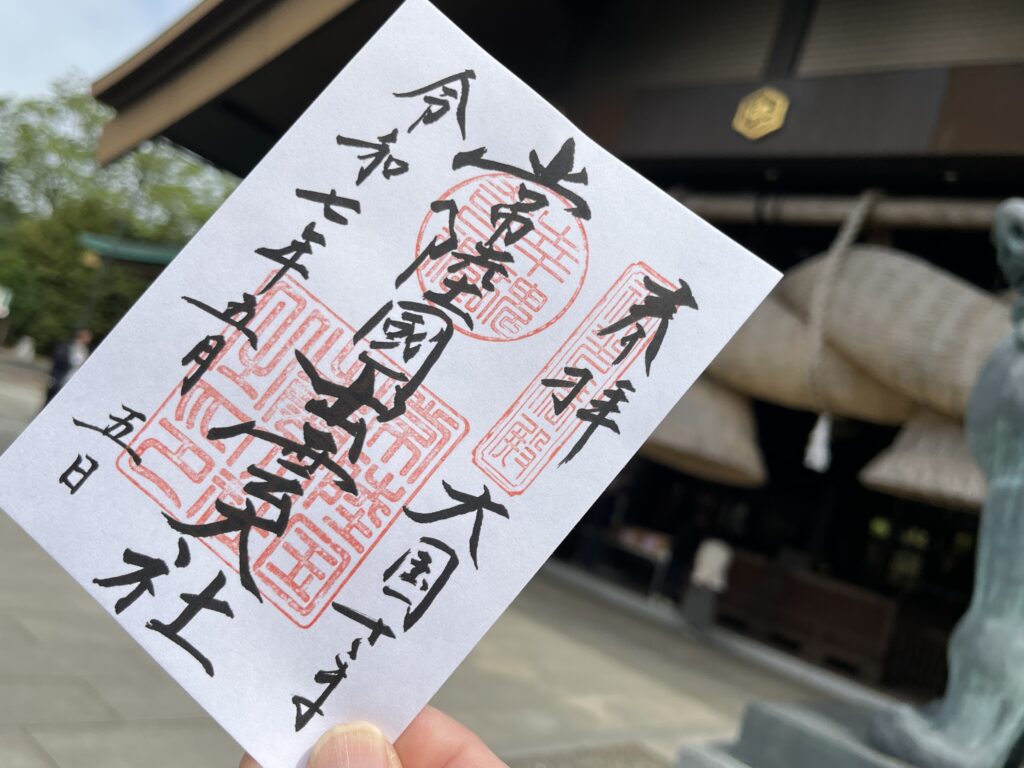 奉拝
大国さま
常陸國出雲大社
令和七年五月五日